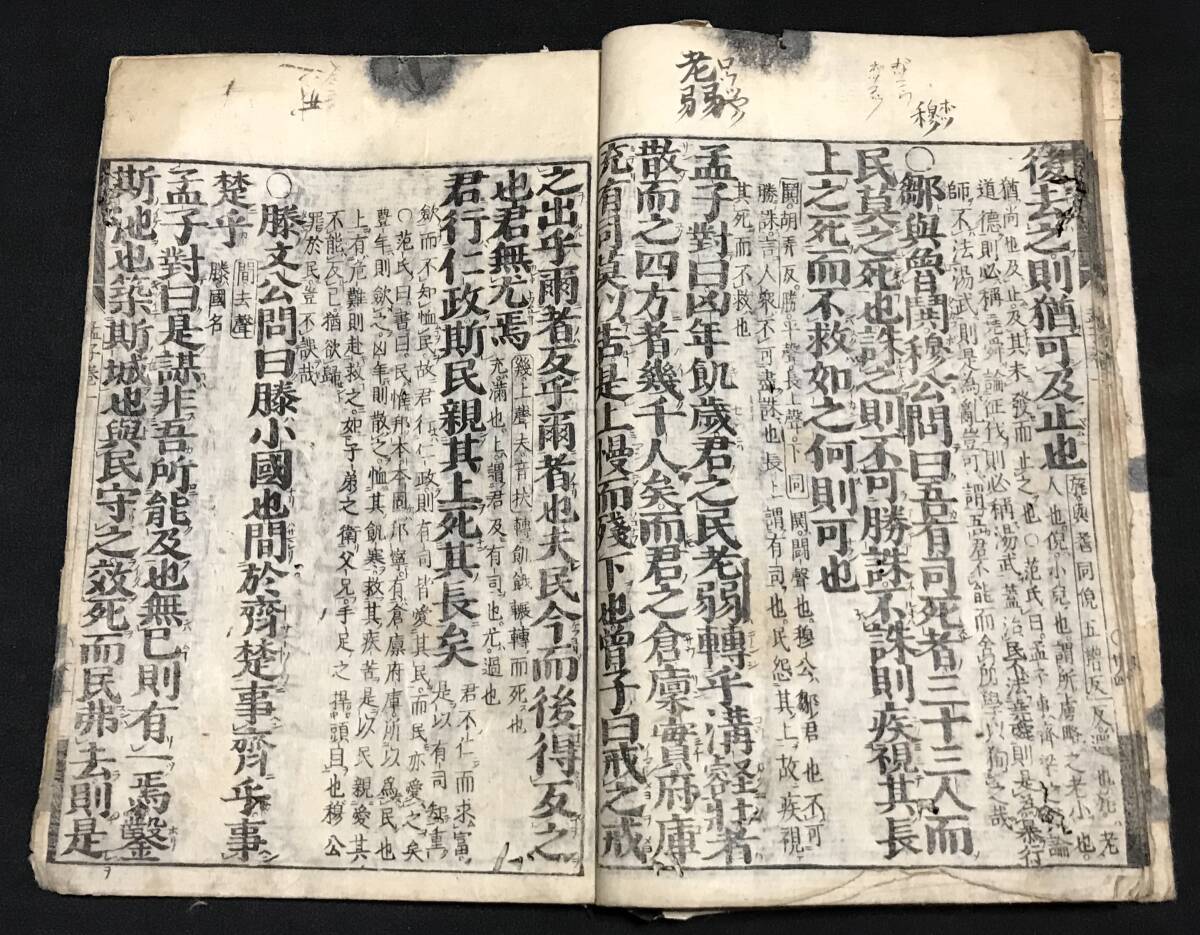 老弱
穆
後去之則猶可及止也
猶尚也及止及其未發而止之也○范氏曰孟子事齊梁之君論
道德則必稱堯舜論征伐則必稱湯武蓋治民不法堯舜則是爲暴行
師不法湯武則是為亂豈可謂吾君不能而舍所學以徇之哉
○鄒與魯鬨穆公問曰吾有司死者三十三人而
民莫之死也誅之則不可勝誅不誅則疾視其長
上之死而不救如之何則可也
鬨胡弄反勝平聲長上聲下同 鬨鬪聲也穆公鄒君也不可
勝誅言人衆不可盡誅也長上謂有司也民怨其上故疾視
其死而不救也
孟子對曰凶年飢歲君之民老弱轉乎溝壑壯者
散而之四方者幾千人矣而君之倉廩實府庫
充有司莫以告是上慢而殘下也曾子曰戒之戒
之出乎爾者反乎爾者也夫民今而後得反之
也君無尤焉
幾上聲夫音扶 轉飢餓輾轉而死也
充滿也上謂君及有司也尤過也
君行仁政斯民親其上死其長矣
君不仁而求富是以有司知重
歛而不知恤民故君行仁政則有司皆愛其民而民亦愛之矣
○范氏曰書曰民惟邦本本固邦寧有倉廩府庫所以為民也
豊年則歛之凶年則散之恤其飢寒救其疾苦是以民親愛其
上有危難則赴救之如子弟之衛父兄手足之捍頭目也穆公
不能反己猶欲歸
罪於民豈不誤哉
○滕文公問曰滕小國也間於齊楚事齊乎事
楚乎
間去聲
滕國名
孟子對曰是謀非吾所能及也無已則有一焉鑿
斯池也築斯城也與民守之效死而民弗去則是